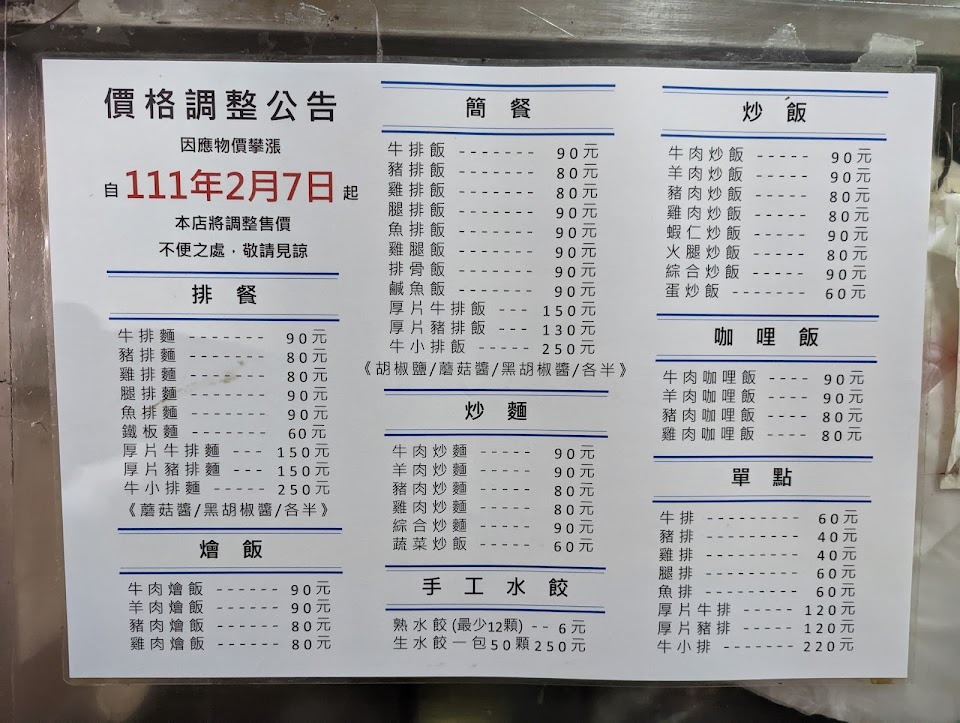 價格調整公告
因應物價攀漲
自 111年2月7日 起
本店將調整售價
不便之處,敬請見諒
排 餐
牛排麵 ------- 90元
豬排麵 ------- 80元
雞排麵 ------- 80元
腿排麵 ------- 90元
魚排麵 ------- 90元
鐵板麵 ------- 60元
厚片牛排麵 --- 150元
厚片豬排麵 --- 150元
牛小排麵 ----- 250元
《蘑菇醬/黑胡椒醬/各半》
燴 飯
牛肉燴飯 ------ 90元
羊肉燴飯 ------ 90元
豬肉燴飯 ------ 80元
雞肉燴飯 ------ 80元
簡餐
牛排飯 ------- 90元
豬排飯 ------- 80元
雞排飯 ------- 80元
腿排飯 ------- 90元
魚排飯 ------- 90元
雞腿飯 ------- 90元
排骨飯 ------- 90元
鹹魚飯 ------- 90元
厚片牛排飯 --- 150元
厚片豬排飯 --- 130元
牛小排飯 ----- 250元
《胡椒鹽/蘑菇醬/黑胡椒醬/各半》
炒麵
牛肉炒麵 ----- 90元
羊肉炒麵 ----- 90元
豬肉炒麵 ----- 80元
雞肉炒麵 ----- 80元
綜合炒麵 ----- 90元
蔬菜炒飯 ----- 60元
手工水餃
熟水餃(最少12顆) -- 6元
生水餃一包50顆250元
炒飯
牛肉炒飯 ----- 90元
羊肉炒飯 ----- 90元
豬肉炒飯 ----- 80元
雞肉炒飯 ----- 80元
蝦仁炒飯 ----- 90元
火腿炒飯 ----- 80元
綜合炒飯 ----- 90元
蛋炒飯 ------- 60元
咖哩飯
牛肉咖哩飯 ---- 90元
羊肉咖哩飯 ---- 90元
豬肉咖哩飯 ---- 80元
雞肉咖哩飯 ---- 80元
單點
牛排 --------- 60元
豬排 --------- 40元
雞排 --------- 40元
腿排 --------- 60元
魚排 --------- 60元
厚片牛排 ----- 120元
厚片豬排 ----- 120元
牛小排 ------- 220元